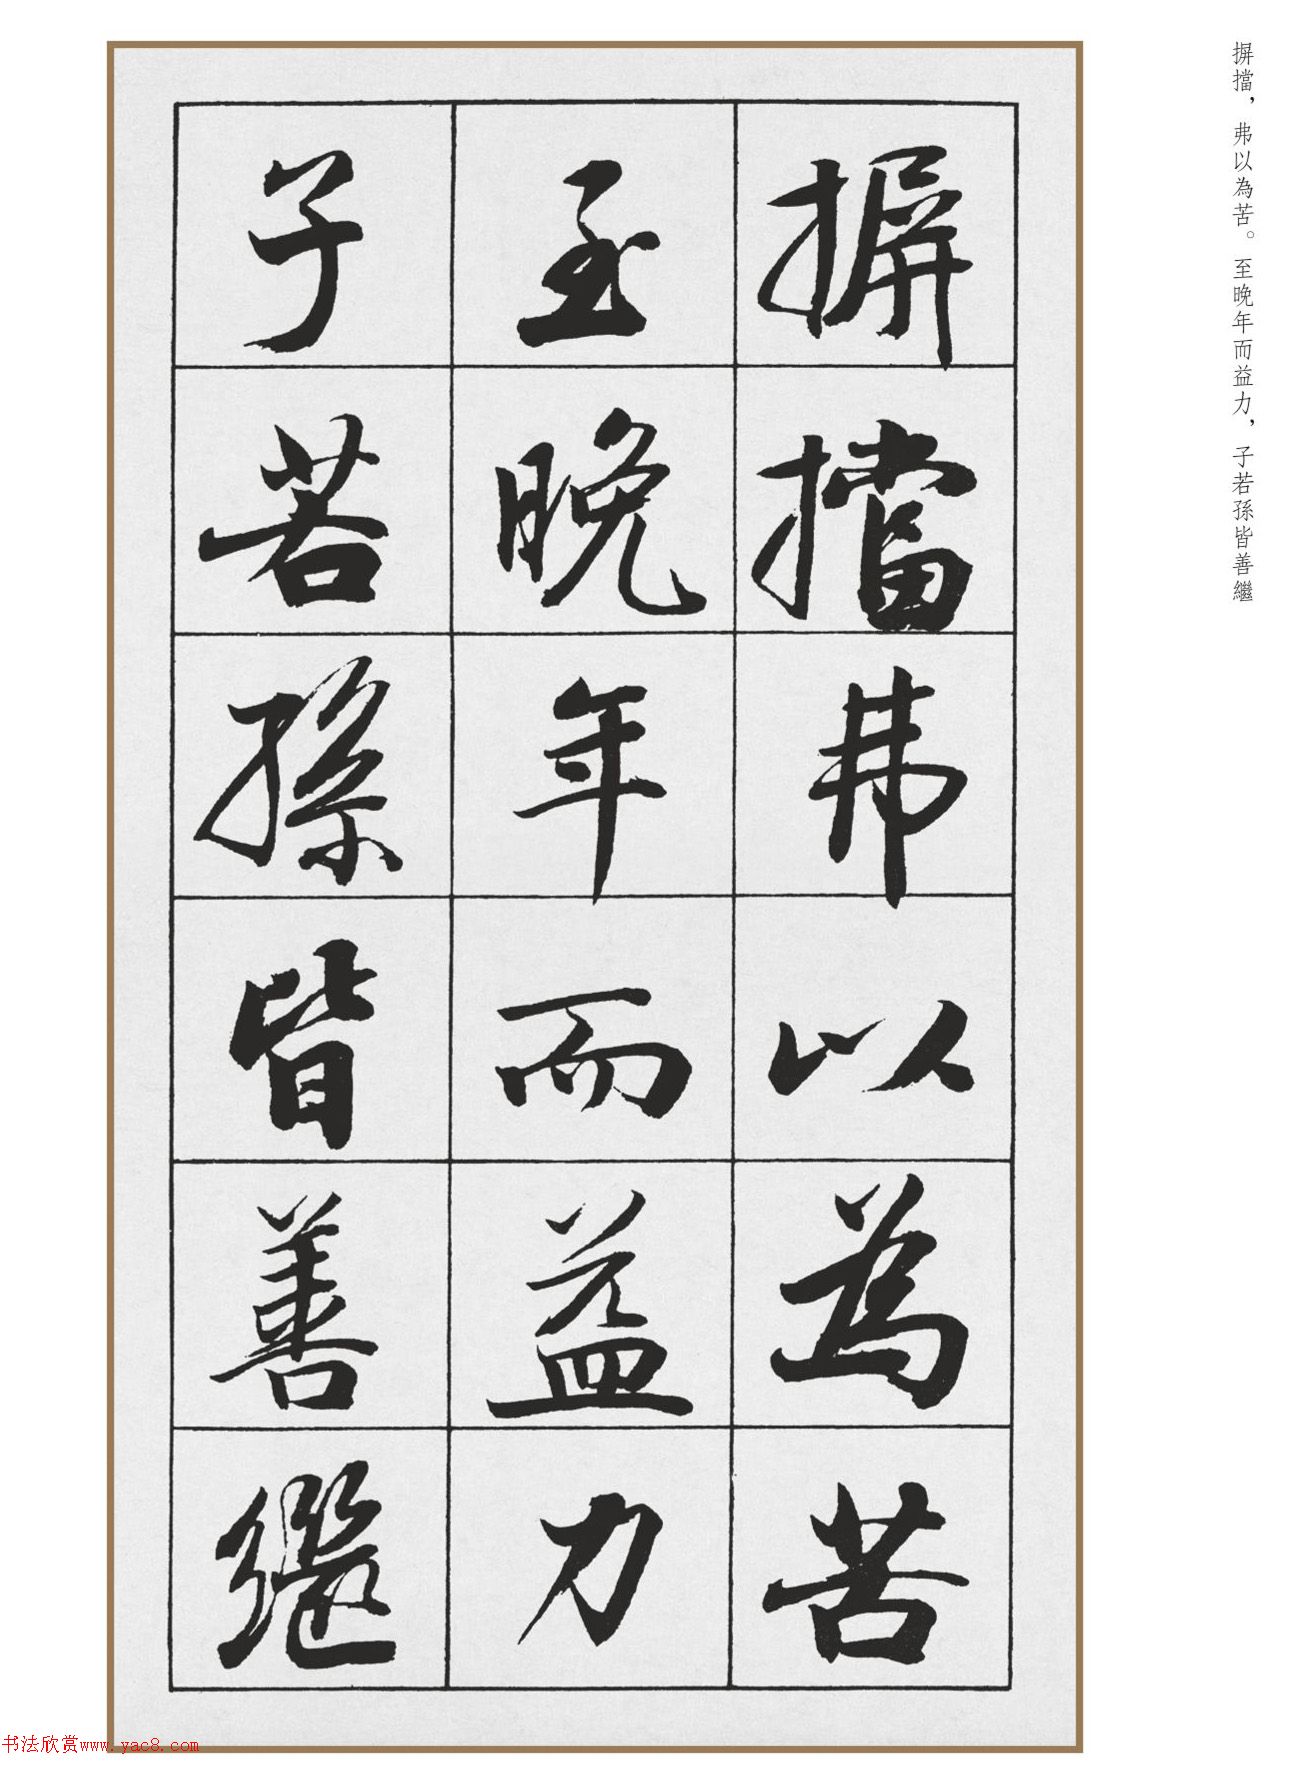 摒擋，弗以為苦。至晚年而益力，子若孫皆善繼
摒擋弗以為苦
至晚年而益力
子若孫皆善繼
书法欣赏www.yac8.com